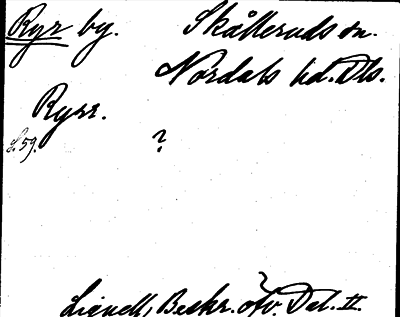 Ryr by. Skålleruds sn.
Nordals hd. Dls.
Ryrr.
s. 59. ?
Lignell, Beskr. öfv. Dal. II.